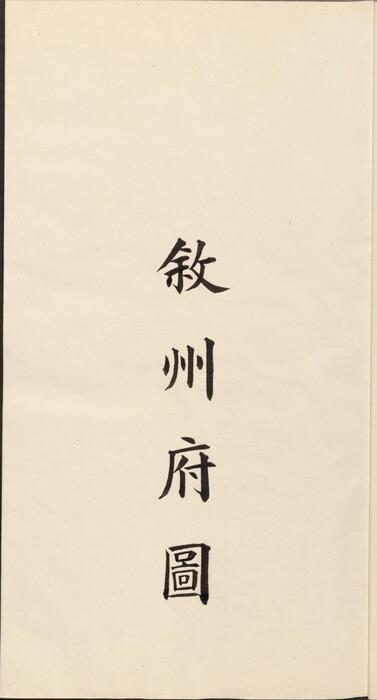 敘州府圖